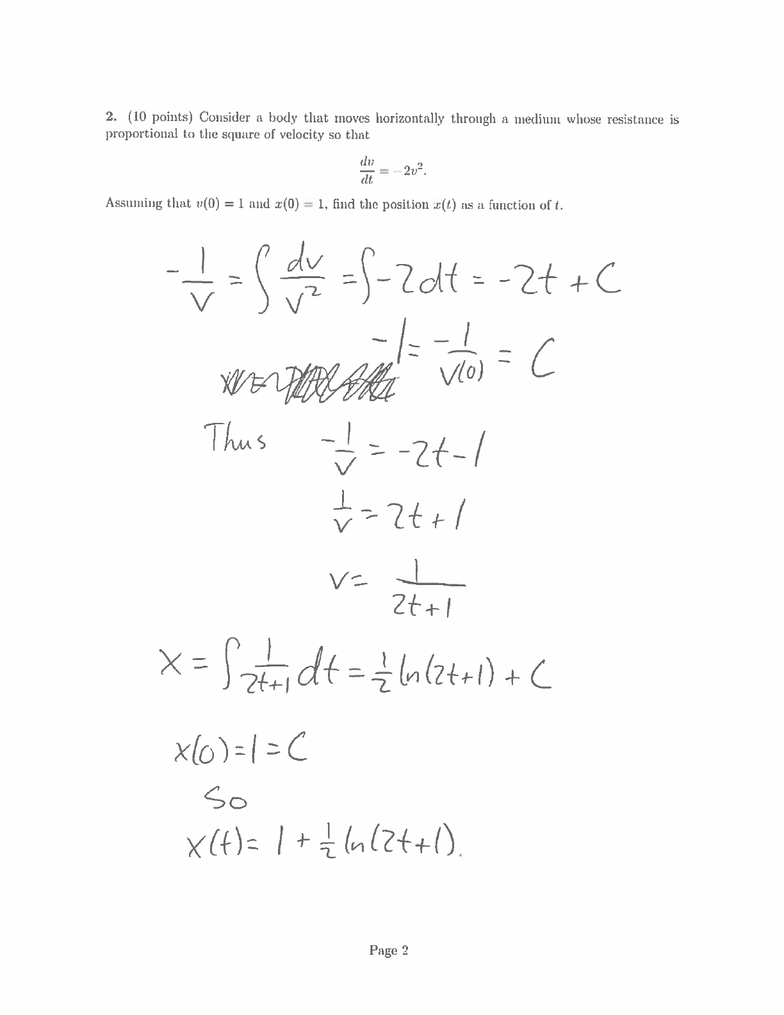 2. (10 points) Consider a body that moves horizontally through a medium whose resistance is
proportional to the square of velocity so that
dv/dt = −2v².
Assuming that v(0) = 1 and x(0) = 1, find the position x(t) as a function of t.
-1/v = ∫ dv/v² = ∫ -2dt = -2t + C
-1 = -1/v(0) = C
Thus -1/v = -2t-1
1/v = 2t+1
v = 1/(2t+1)
x = ∫ 1/(2t+1) dt = 1/2 ln(2t+1) + C
x(0) = 1 = C
So
x(t) = 1 + 1/2 ln(2t+1).
Page 2